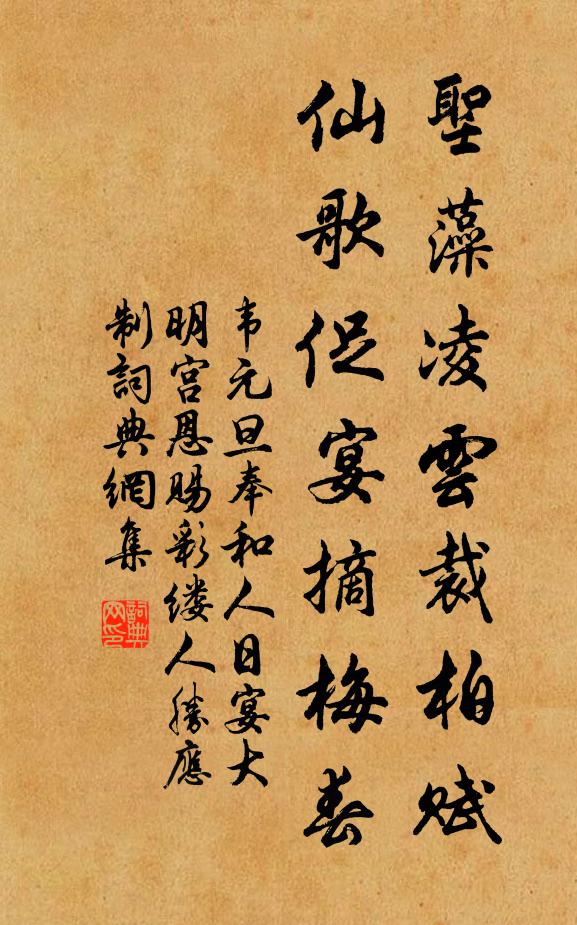 聖藻凌雲裁柏賦
仙歌促宴摘梅春
韦元旦奉和人日宴大
明宫恩賜彩缕人勝應
制詞典網集
詞典
网印